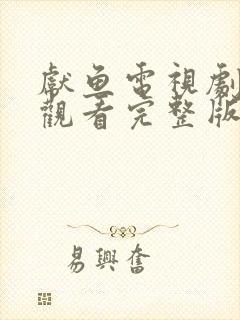 獻魚電視劇
觀看完整版
易興奮